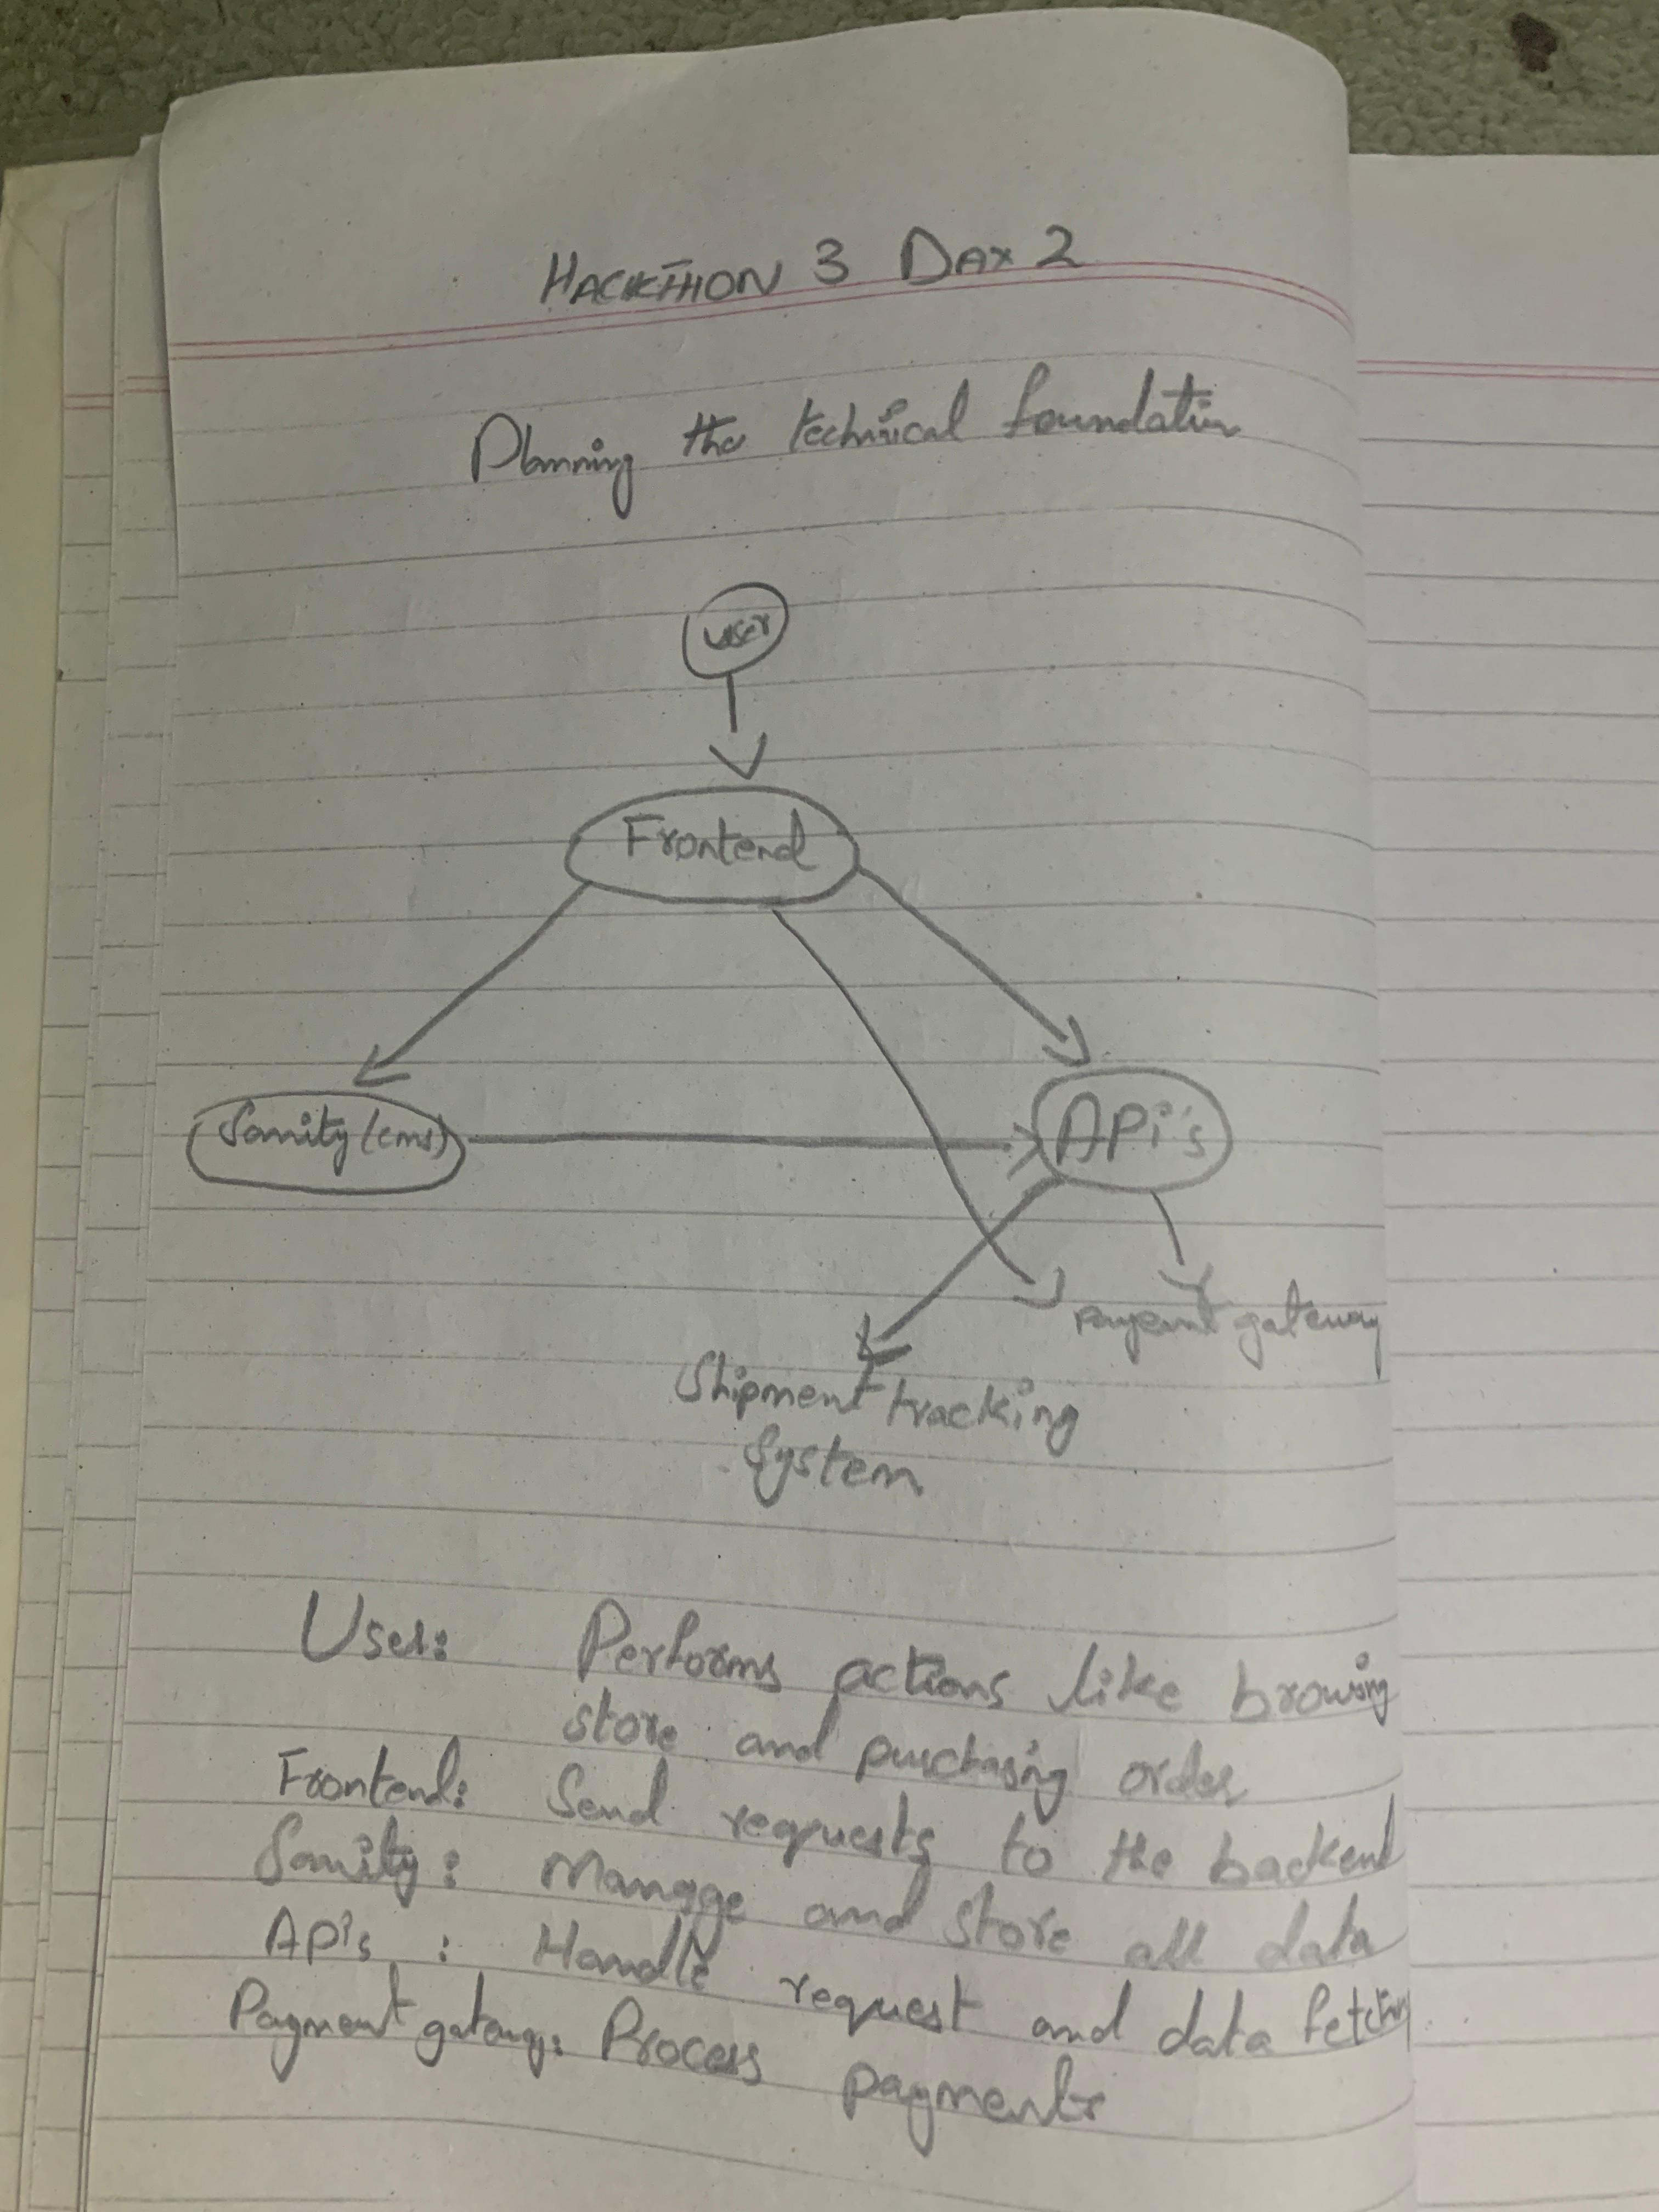 HACKTHON 3 DAY 2
Planning the technical foundation
user
Frontend
Sanity (cms)
APi's
payemt gateway
Shipment tracking
System
User: Performs actions like browsing
store and purchasing order
Frontend: Send requests to the backend
Sanity: Manage and store all data
APi's : Handle request and data fetching
Payment gateway: Process payments